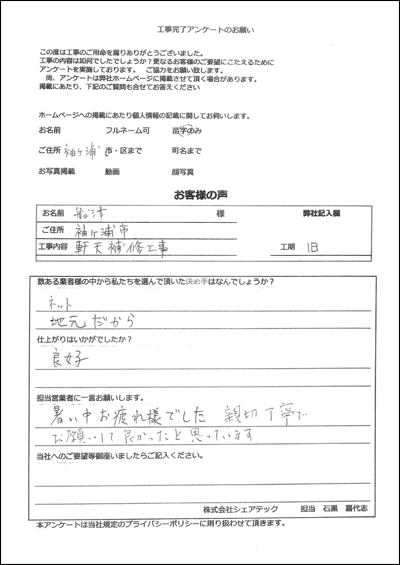 工事完了アンケートのお願い
この度は工事のご用命を賜りありがとうございました。
工事の内容は如何でしたでしょうか？更なるお客様のご要望にこたえるために
アンケートを実施しております。　ご協力をお願い致します。
尚、アンケートは弊社ホームページに掲載させて頂く場合があります。
掲載にあたり、下記のご質問も合せてお答えください
ホームページへの掲載にあたり個人情報の記載に関してお伺いします。
お名前　フルネーム可　苗字のみ
ご住所　袖ケ浦　市・区まで　町名まで
お写真掲載　動画　顔写真
お客様の声
お名前　船津　様　弊社記入欄
ご住所　袖ケ浦市
工事内容　軒天補修工事　工期　1日
数ある業者様の中から私たちを選んで頂いた決め手はなんでしょうか？
ネット
地元だから
仕上がりはいかがでしたか？
良好
担当営業者に一言お願いします。
暑い中お疲れ様でした　親切丁寧で
お願いして良かったと思っています
当社へのご要望等御座いましたらご記入ください。
株式会社シェアテック　担当　石黒　喜代志
本アンケートは当社規定のプライバシーポリシーに則り扱わせて頂きます。